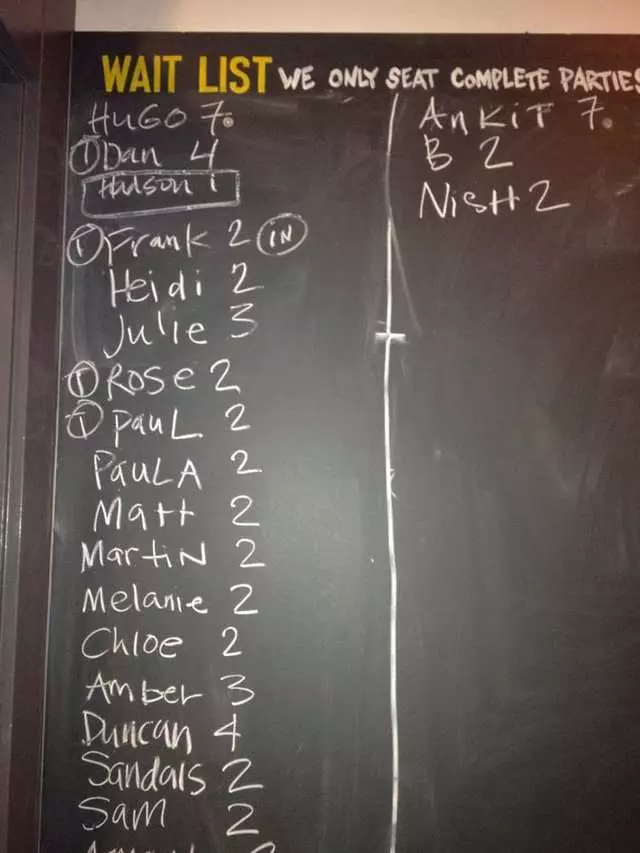 WAIT LIST WE ONLY SEAT COMPLETE PARTIES
HUGO 7.
① Dan 4
Hudson 1
① Frank 2 IN
Heidi 2
Julie 3
① ROSE 2
① PAUL 2
PAULA 2
Matt 2
MartiN 2
Melanie 2
Chloe 2
Amber 3
Duncan 4
Sandals 2
SAM 2
AnKiT 7.
B 2
NisH 2